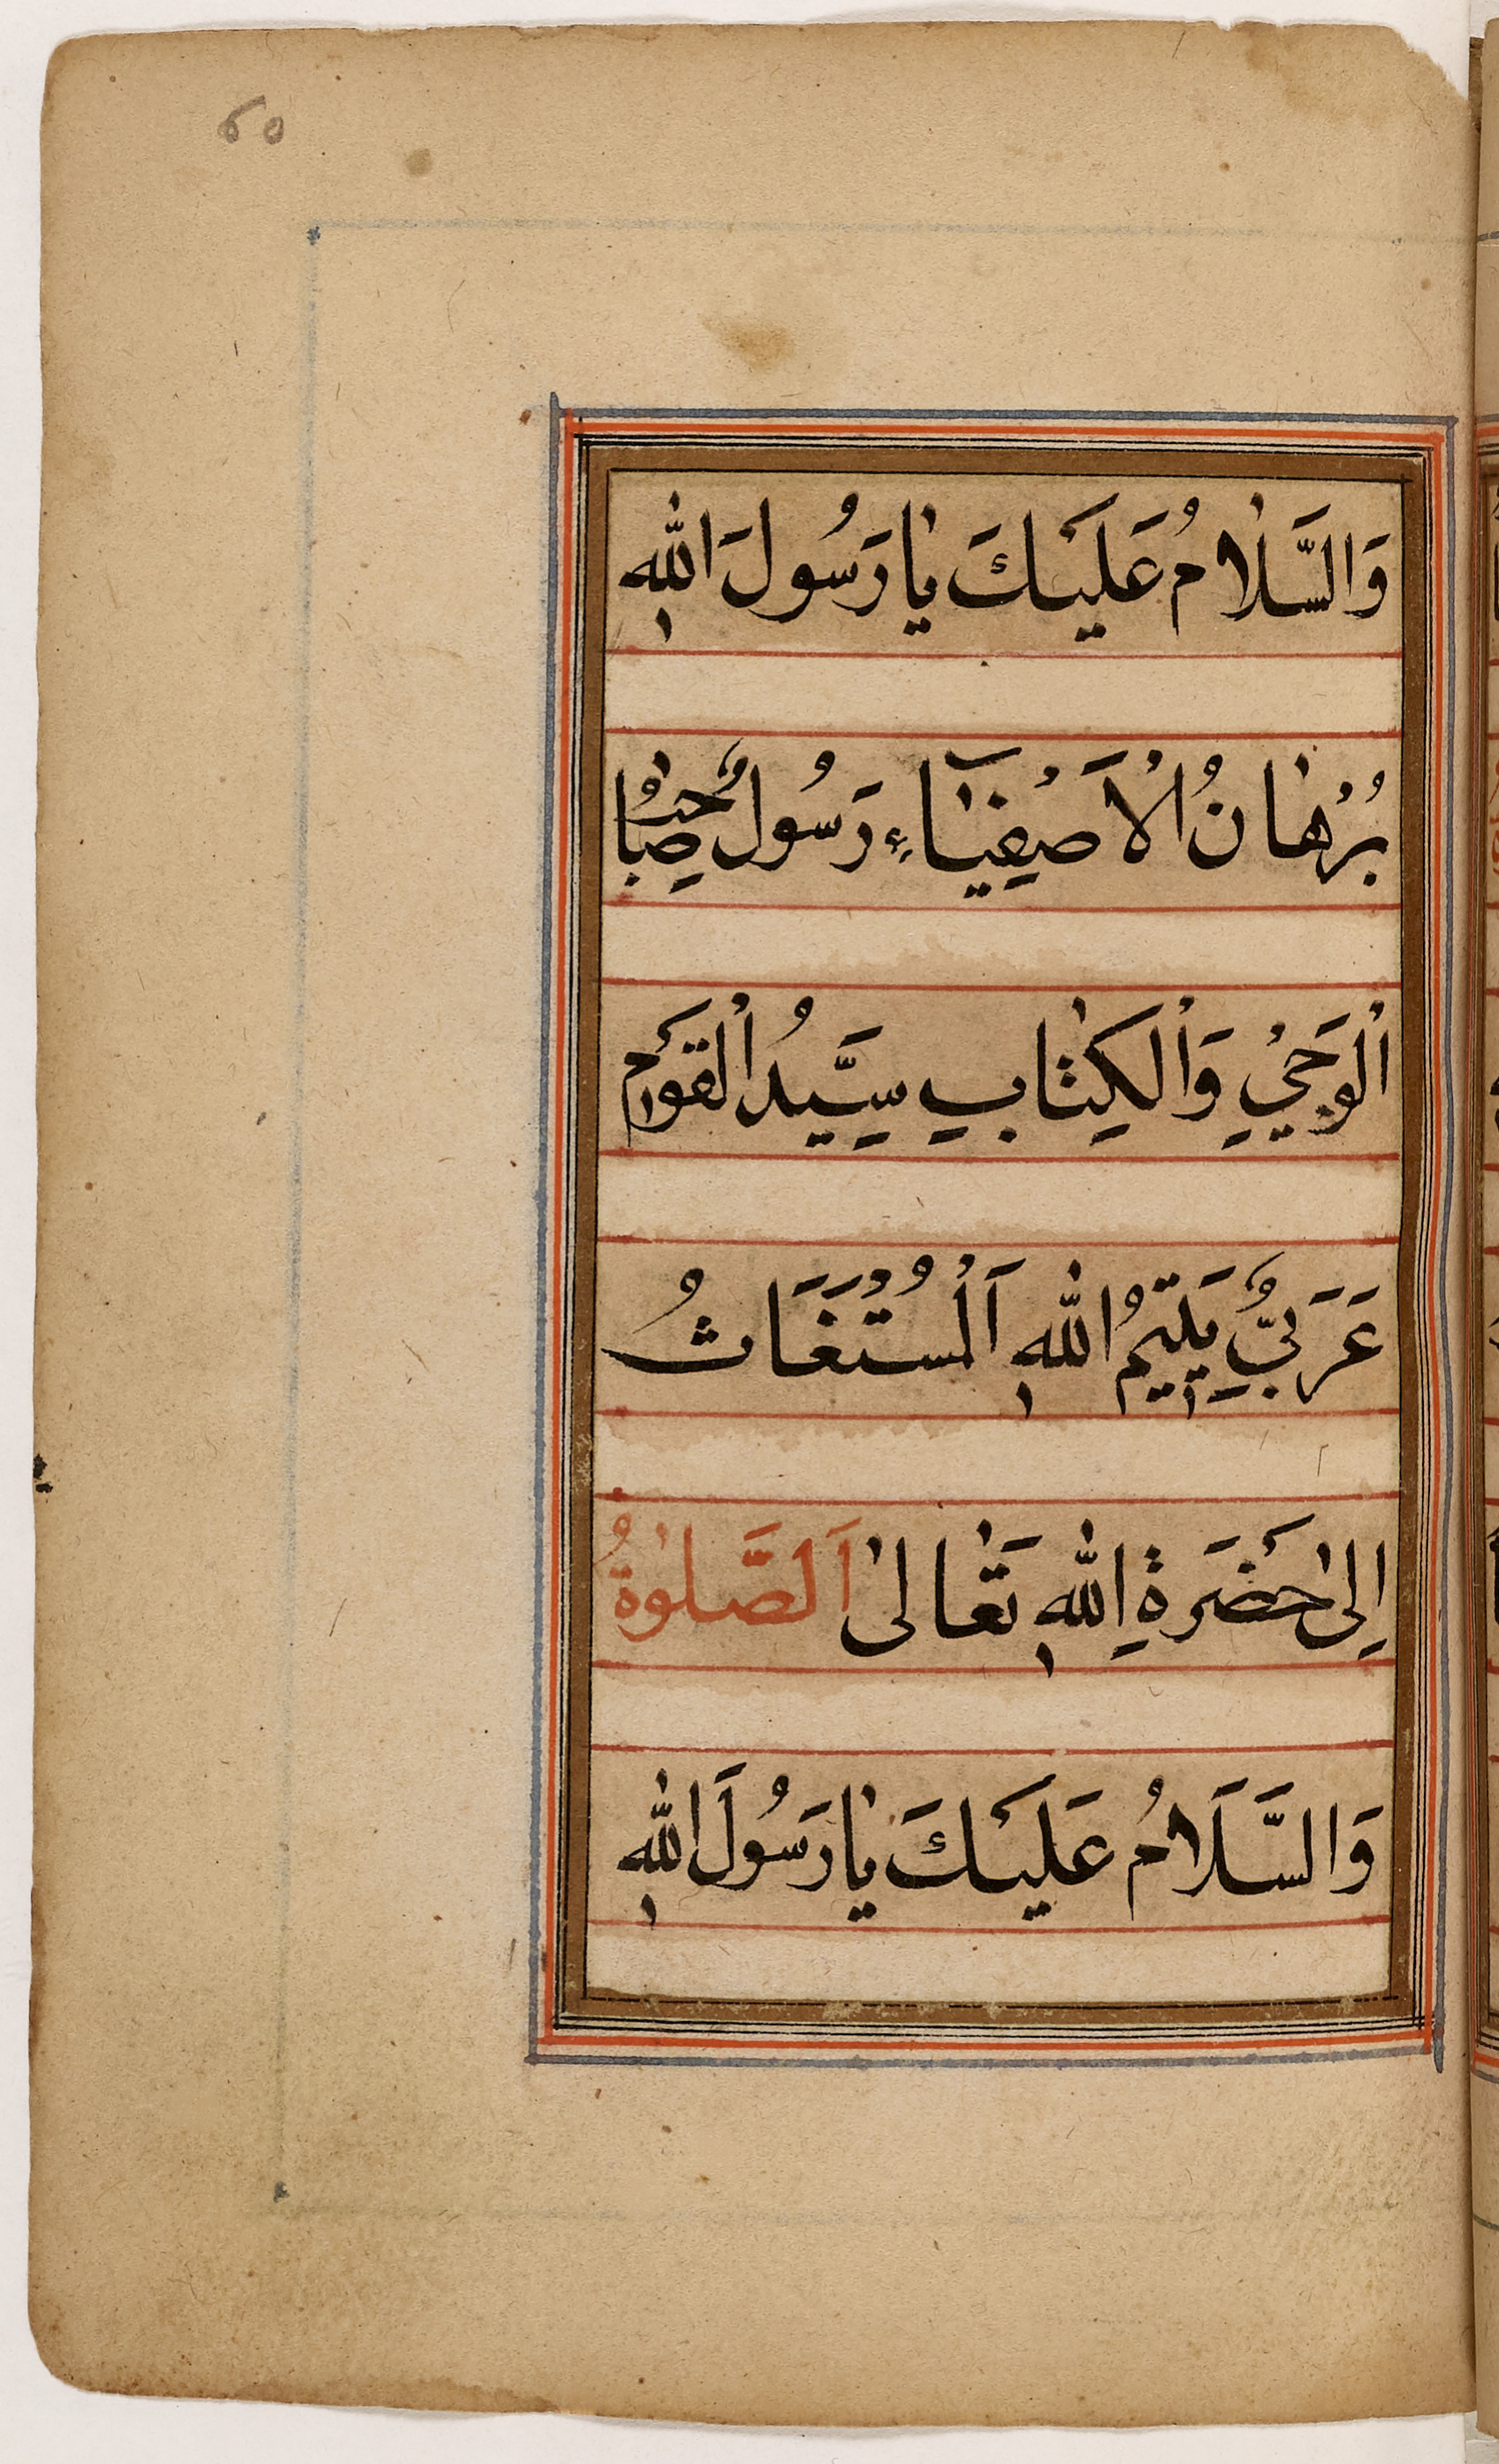 ٤٥
وَالسَّلٰامُ عَلَيْكَ يٰا رَسُولَ اللّٰهِ
بُرْهٰانُ الْاَصْفِيَٰٓاءِ رَسُولٌ صٰاحِبُ
الْوَحْيِ وَالْكِتٰابِ سَيِّدُ الْقَوْمِ
عَرَبِيٌّ يَتِيمُ اللّٰهِ اَلْمُسْتَغَاثُ
اِلٰى حَضْرَةِ اللّٰهِ تَعٰالىٰ اَلصَّلٰوةُ
وَالسَّلَامُ عَلَيْكَ يٰا رَسُولَ اللّٰهِ